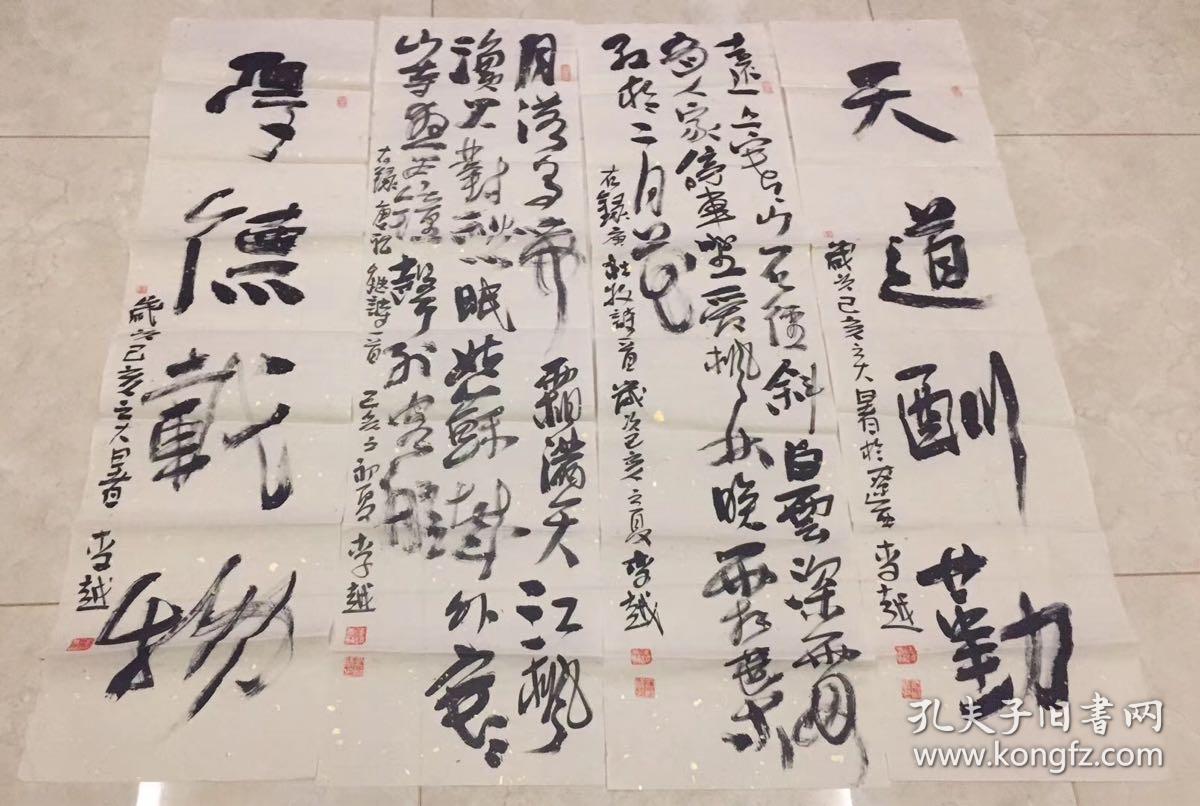 天道酬勤
歲次己亥之大暑於 李越
遠上寒山石徑斜白雲深
有人家停車坐愛楓林晚霜葉
紅於二月花
右錄唐杜牧詩一首歲次己亥之夏李越
月落烏啼霜滿天江楓
漁火對愁眠姑蘇城外寒
山寺夜半鐘聲到客船
右錄唐張繼詩一首己亥之初夏李越
厚德載物
歲次己亥之大暑
李越
孔夫子旧书网
www.kongfz.com